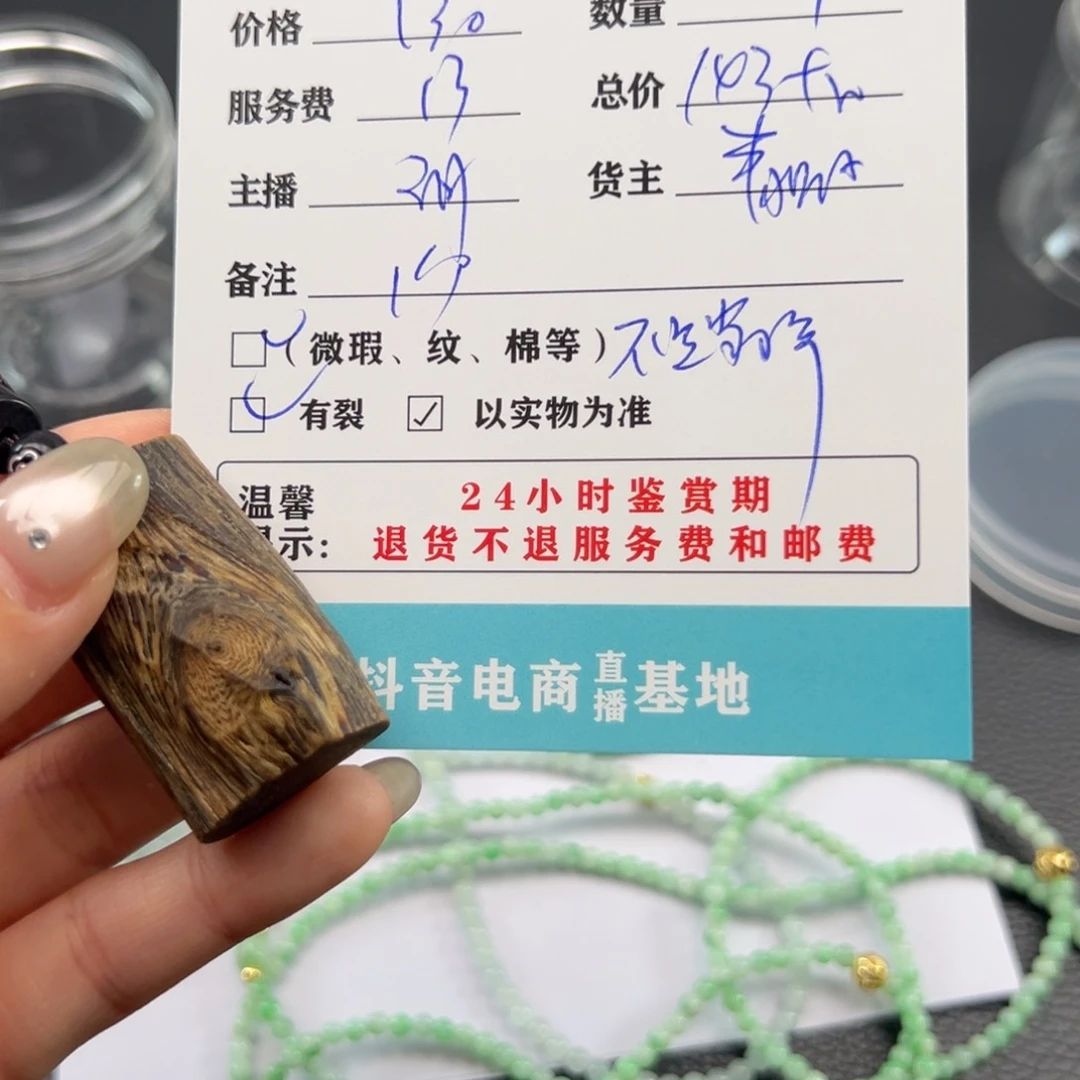 价格 130 数量 1
服务费 13 总价 143
主播 货主
备注
（微瑕、纹、棉等）
有裂 ✓ 以实物为准
温馨 24小时鉴赏期
示: 退货不退服务费和邮费
抖音电商直播基地